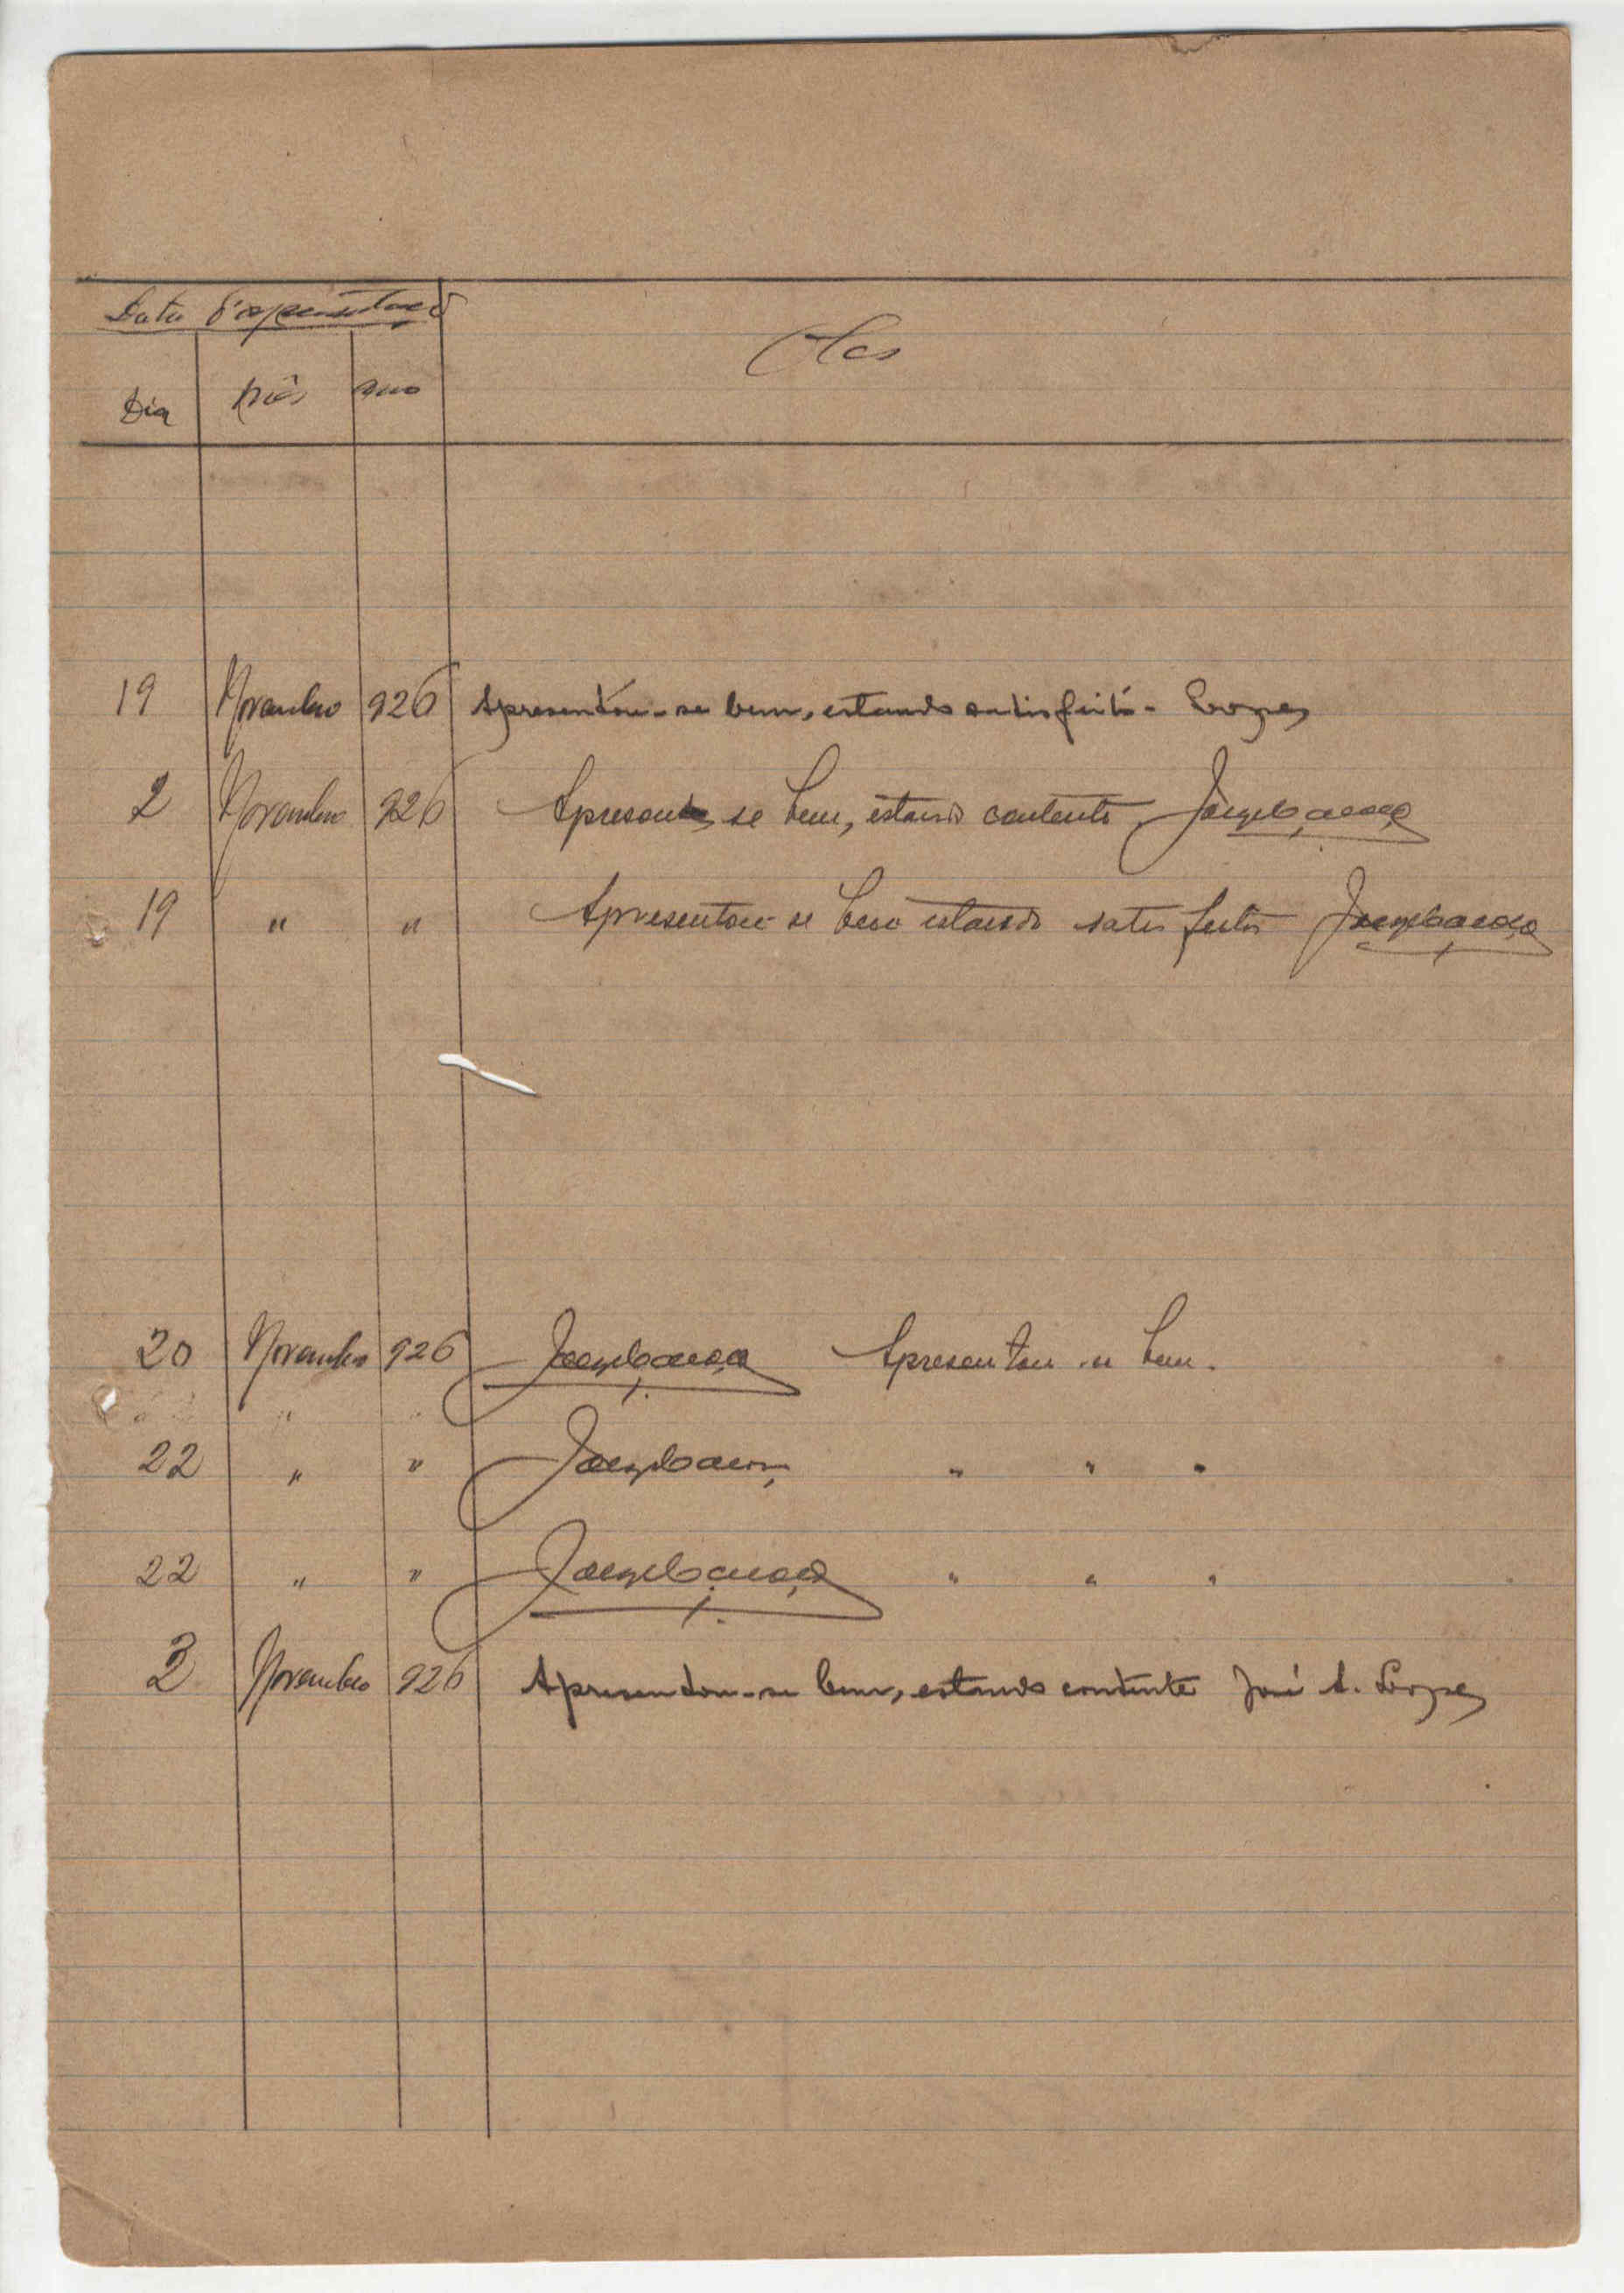 Data d'apresentacõ
Obs
Dia Mês ano
19 Novembro 926 Apresentou-se bem, estando satisfeito - Lopes
2 Novembro 926 Apresentou se bem, estando contente
19 " " Apresentou-se bem estando satisfeito
20 Novembro 926 Apresentou-se bem.
" "
22 " " " " "
22 " " " " "
3 Novembro 926 Apresentou-se bem, estando contente José A. Lopes